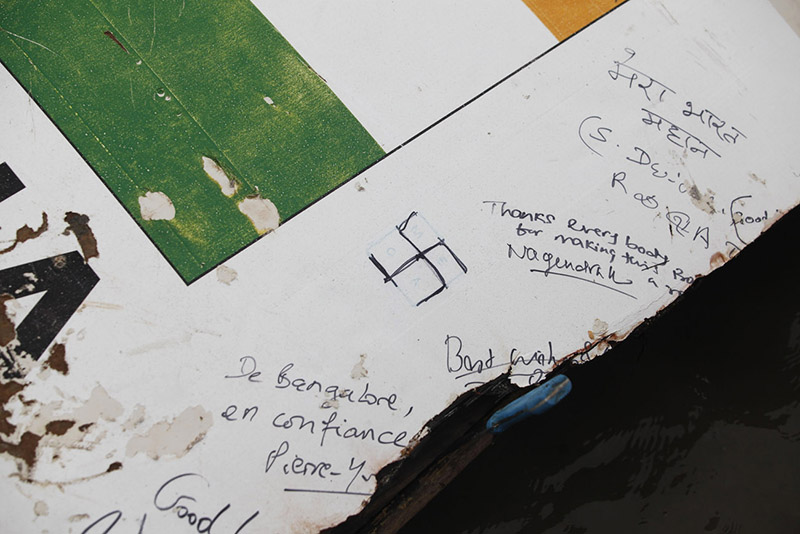 मेरा भारत
महान
(S.
Thanks every body
for making this
Nagendra
a
Best wish
De Bangalore,
en confiance
Pierre-Y.
Good!
Good
A